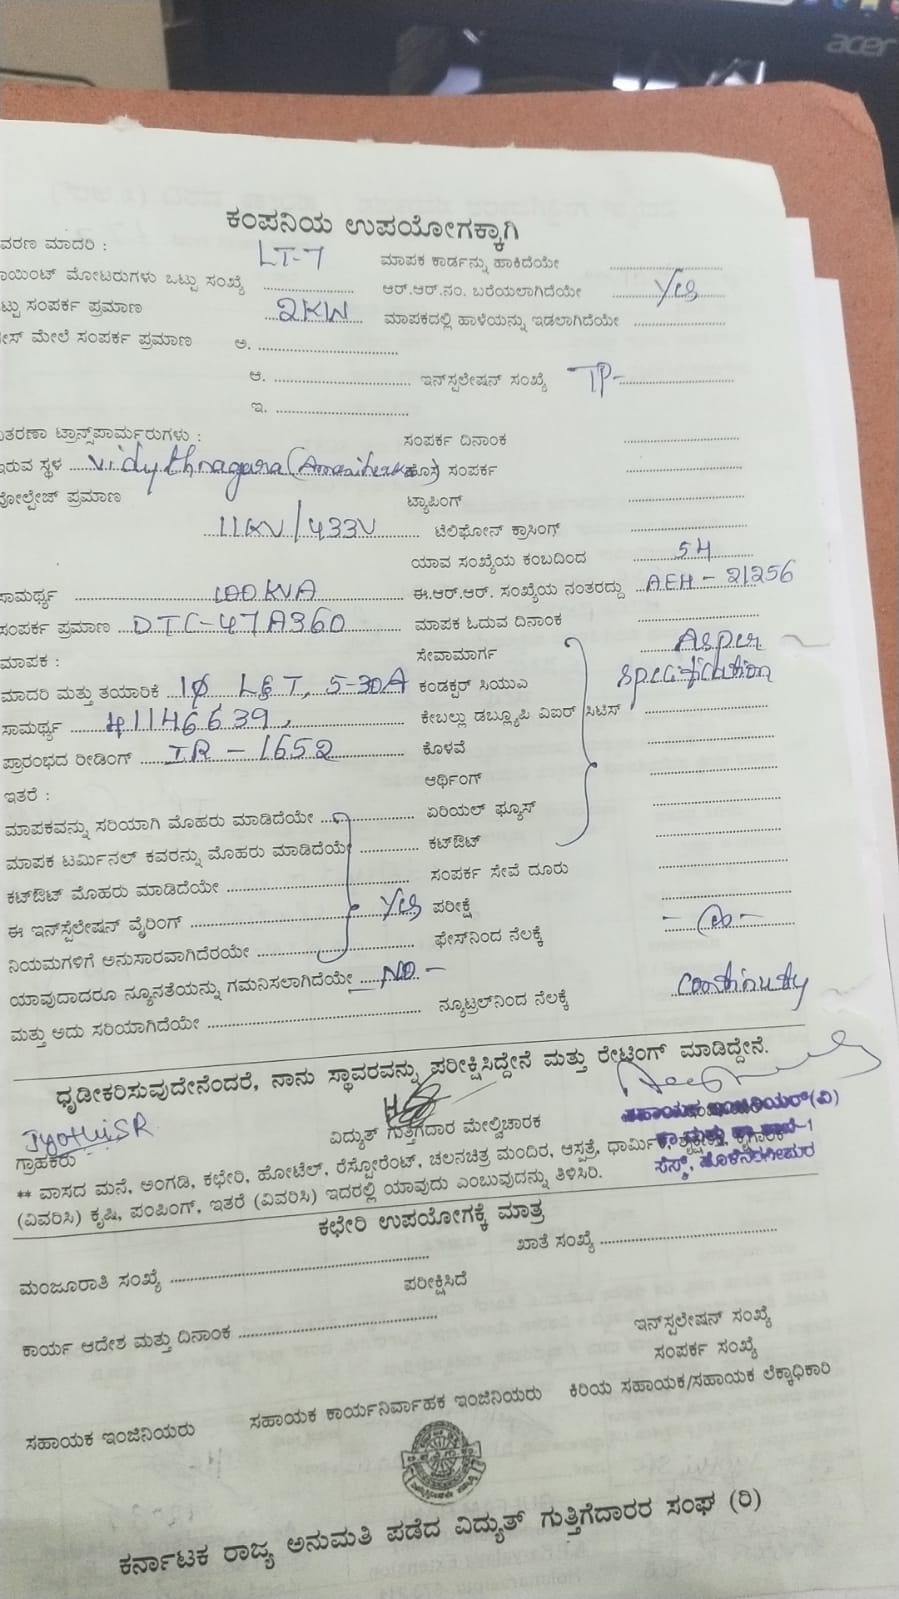 acer
ಕಂಪನಿಯ ಉಪಯೋಗಕ್ಕಾಗಿ
ವರಣ ಮಾದರಿ : LT-7 ಮಾಪಕ ಕಾರ್ಡನ್ನು ಹಾಕಿದೆಯೇ
ಾಯಿಂಟ್ ಮೋಟರುಗಳು ಒಟ್ಟು ಸಂಖ್ಯೆ ಆರ್.ಆರ್.ನಂ. ಬರೆಯಲಾಗಿದೆಯೇ Yes
ಟ್ಟು ಸಂಪರ್ಕ ಪ್ರಮಾಣ 2KW ಮಾಪಕದಲ್ಲಿ ಹಾಳೆಯನ್ನು ಇಡಲಾಗಿದೆಯೇ
ೇಸ್ ಮೇಲೆ ಸಂಪರ್ಕ ಪ್ರಮಾಣ ಅ.
ಆ. ಇನ್‌ಸ್ಪಲೇಷನ್ ಸಂಖ್ಯೆ TP-
ಇ.
ತರಣಾ ಟ್ರಾನ್ಸ್‌ಪಾರ್ಮರುಗಳು : ಸಂಪರ್ಕ ದಿನಾಂಕ
ಇರುವ ಸ್ಥಳ Vidythnagara ಹೊಸ ಸಂಪರ್ಕ
ವೋಲ್ಟೇಜ್ ಪ್ರಮಾಣ ಟ್ಯಾಪಿಂಗ್
11KV/433V ಟೆಲಿಫೋನ್ ಕ್ರಾಸಿಂಗ್
ಯಾವ ಸಂಖ್ಯೆಯ ಕಂಬದಿಂದ 54
ಸಾಮರ್ಥ್ಯ 100KVA ಈ.ಆರ್.ಆರ್. ಸಂಖ್ಯೆಯ ನಂತರದ್ದು AEH-21256
ಸಂಪರ್ಕ ಪ್ರಮಾಣ DTC-47A360 ಮಾಪಕ ಓದುವ ದಿನಾಂಕ
ಮಾಪಕ : ಸೇವಾಮಾರ್ಗ Asper
ಮಾದರಿ ಮತ್ತು ತಯಾರಿಕೆ 1ϕ L&T, 5-30A ಕಂಡಕ್ಟರ್ ಸಿಯುಎ specification
ಸಾಮರ್ಥ್ಯ 41146639, ಕೇಬಲ್ಲು ಡಬ್ಲ್ಯೂಪಿ ಎಐರ್ ಸಿಟಿಸ್
ಪ್ರಾರಂಭದ ರೀಡಿಂಗ್ IR-1652 ಕೊಳವೆ
ಇತರೆ : ಆರ್ಥಿಂಗ್
ಮಾಪಕವನ್ನು ಸರಿಯಾಗಿ ಮೊಹರು ಮಾಡಿದೆಯೇ ಏರಿಯಲ್ ಫ್ಯೂಸ್
ಮಾಪಕ ಟರ್ಮಿನಲ್ ಕವರನ್ನು ಮೊಹರು ಮಾಡಿದೆಯೇ ಕಟ್‌ಔಟ್
ಕಟ್‌ಔಟ್ ಮೊಹರು ಮಾಡಿದೆಯೇ ಸಂಪರ್ಕ ಸೇವೆ ದೂರು
ಈ ಇನ್‌ಸ್ಪೆಲೇಷನ್ ವೈರಿಂಗ್ Yes ಪರೀಕ್ಷೆ
ನಿಯಮಗಳಿಗೆ ಅನುಸಾರವಾಗಿದೆರಯೇ ಫೇಸ್‌ನಿಂದ ನೆಲಕ್ಕೆ
ಯಾವುದಾದರೂ ನ್ಯೂನತೆಯನ್ನು ಗಮನಿಸಲಾಗಿದೆಯೇ NO-
ಮತ್ತು ಅದು ಸರಿಯಾಗಿದೆಯೇ ನ್ಯೂಟ್ರಲ್‌ನಿಂದ ನೆಲಕ್ಕೆ continuty
ಧೃಡೀಕರಿಸುವುದೇನೆಂದರೆ, ನಾನು ಸ್ಥಾವರವನ್ನು ಪರೀಕ್ಷಿಸಿದ್ದೇನೆ ಮತ್ತು ರೇಟಿಂಗ್ ಮಾಡಿದ್ದೇನೆ.
JyothiSR
ಗ್ರಾಹಕರು ವಿದ್ಯುತ್ ಗುತ್ತಿಗೆದಾರ ಮೇಲ್ವಿಚಾರಕ
ಸಹಾಯಕ ಇಂಜಿನಿಯರ್(ವಿ)
ಸೆಸ್ಕ್, ಹೊಳೆನರಸೀಪುರ
** ವಾಸದ ಮನೆ, ಅಂಗಡಿ, ಕಛೇರಿ, ಹೋಟೆಲ್, ರೆಸ್ಟೋರೆಂಟ್, ಚಲನಚಿತ್ರ ಮಂದಿರ, ಆಸ್ಪತ್ರೆ, ಧಾರ್ಮಿಕ, ಶೈಕ್ಷಣಿಕ, ಕೈಗಾರಿಕೆ
(ವಿವರಿಸಿ) ಕೃಷಿ, ಪಂಪಿಂಗ್, ಇತರೆ (ವಿವರಿಸಿ) ಇದರಲ್ಲಿ ಯಾವುದು ಎಂಬುವುದನ್ನು ತಿಳಿಸಿರಿ.
ಕಛೇರಿ ಉಪಯೋಗಕ್ಕೆ ಮಾತ್ರ
ಮಂಜೂರಾತಿ ಸಂಖ್ಯೆ ಖಾತೆ ಸಂಖ್ಯೆ
ಪರೀಕ್ಷಿಸಿದೆ
ಕಾರ್ಯ ಆದೇಶ ಮತ್ತು ದಿನಾಂಕ
ಇನ್‌ಸ್ಪಲೇಷನ್ ಸಂಖ್ಯೆ
ಸಂಪರ್ಕ ಸಂಖ್ಯೆ
ಸಹಾಯಕ ಇಂಜಿನಿಯರು ಸಹಾಯಕ ಕಾರ್ಯನಿರ್ವಾಹಕ ಇಂಜಿನಿಯರು ಕಿರಿಯ ಸಹಾಯಕ/ಸಹಾಯಕ ಲೆಕ್ಕಾಧಿಕಾರಿ
ಕರ್ನಾಟಕ ರಾಜ್ಯ ಅನುಮತಿ ಪಡೆದ ವಿದ್ಯುತ್ ಗುತ್ತಿಗೆದಾರರ ಸಂಘ (ರಿ)